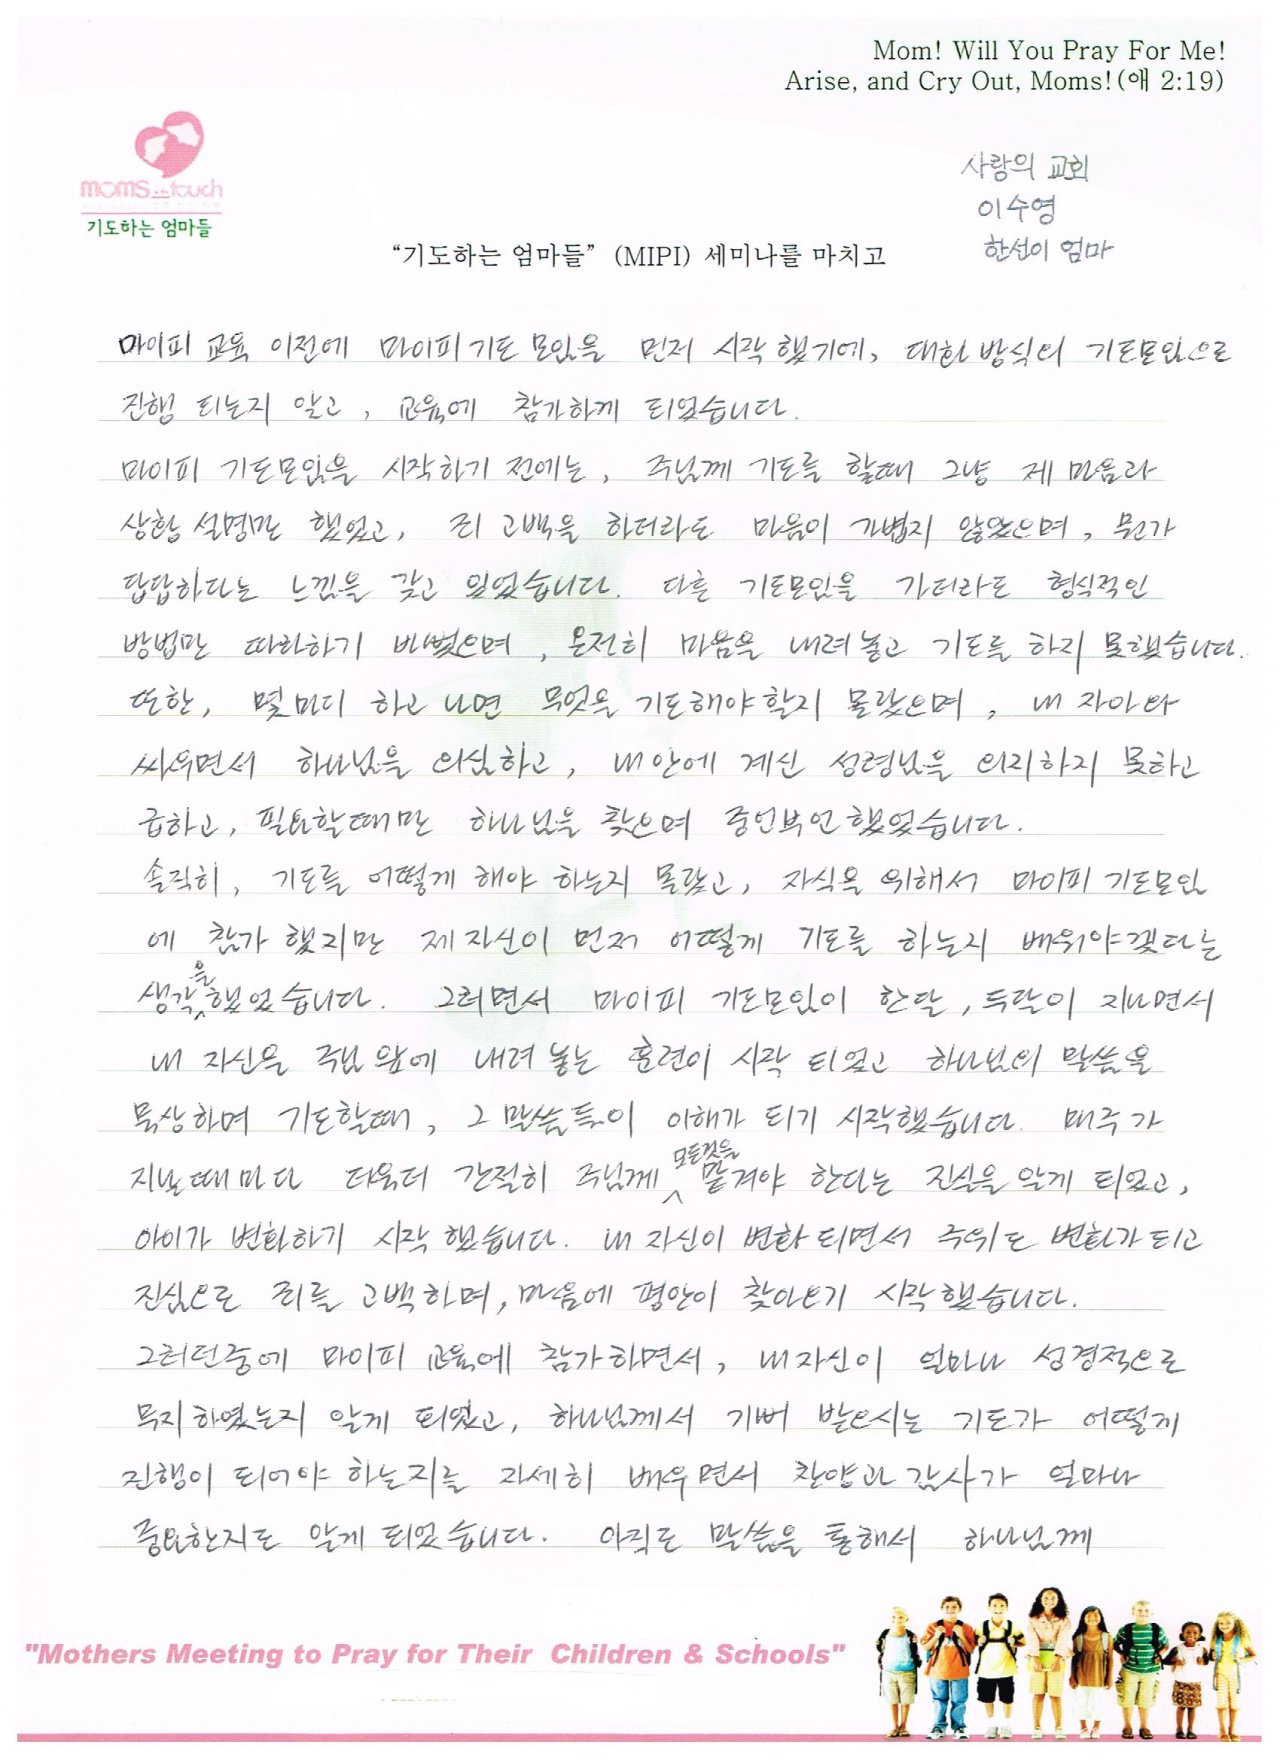 Mom! Will You Pray For Me!
Arise, and Cry Out, Moms!(애 2:19)
moms in touch
기도하는 엄마들
사랑의 교회
이수영
한선이 엄마
“기도하는 엄마들” (MIPI) 세미나를 마치고
마이피 교육 이전에 마이피 기도 모임을 먼저 시작 했기에, 대한 방식의 기도모임으로
진행 되는지 알고, 교육에 참가하게 되었습니다.
마이피 기도모임을 시작하기 전에는, 주님께 기도를 할때 그냥 제 마음과
상황 설명만 했었고, 죄 고백을 하더라도 마음이 가볍지 않았으며, 뭔가
답답하다는 느낌을 갖고 있었습니다. 다른 기도모임을 가더라도 형식적인
방법만 따라하기 바빴으며, 온전히 마음을 내려놓고 기도를 하지 못했습니다.
또한, 몇마디 하고 나면 무엇을 기도해야할지 몰랐으며, 내 자아와
싸우면서 하나님을 의심하고, 내안에 계신 성령님을 의지하지 못하고
급하고, 필요할때만 하나님을 찾으며 중언부언했었습니다.
솔직히, 기도를 어떻게 해야 하는지 몰랐고, 자식을 위해서 마이피 기도모임
에 참가 했지만 제자신이 먼저 어떻게 기도를 하는지 배워야겠다는
생각을 했었습니다. 그러면서 마이피 기도모임이 한달, 두달이 지나면서
내 자신을 주님 앞에 내려 놓는 훈련이 시작 되었고 하나님의 말씀을
묵상하며 기도할때, 그 말씀들이 이해가 되기 시작했습니다. 매주가
지날때마다 더욱더 간절히 주님께 모든것을 맡겨야 한다는 진실을 알게 되었고,
아이가 변화하기 시작 했습니다. 내 자신이 변화 되면서 주위도 변화가 되고
진심으로 죄를 고백하며, 마음에 평안이 찾아오기 시작했습니다.
그러던중에 마이피 교육에 참가하면서, 내자신이 얼마나 성경적으로
무지하였는지 알게 되었고, 하나님께서 기뻐 받으시는 기도가 어떻게
진행이 되어야 하는지를 자세히 배우면서 찬양과 감사가 얼마나
중요한지도 알게 되었습니다. 아직도 말씀을 통해서 하나님께
"Mothers Meeting to Pray for Their Children & Schools"